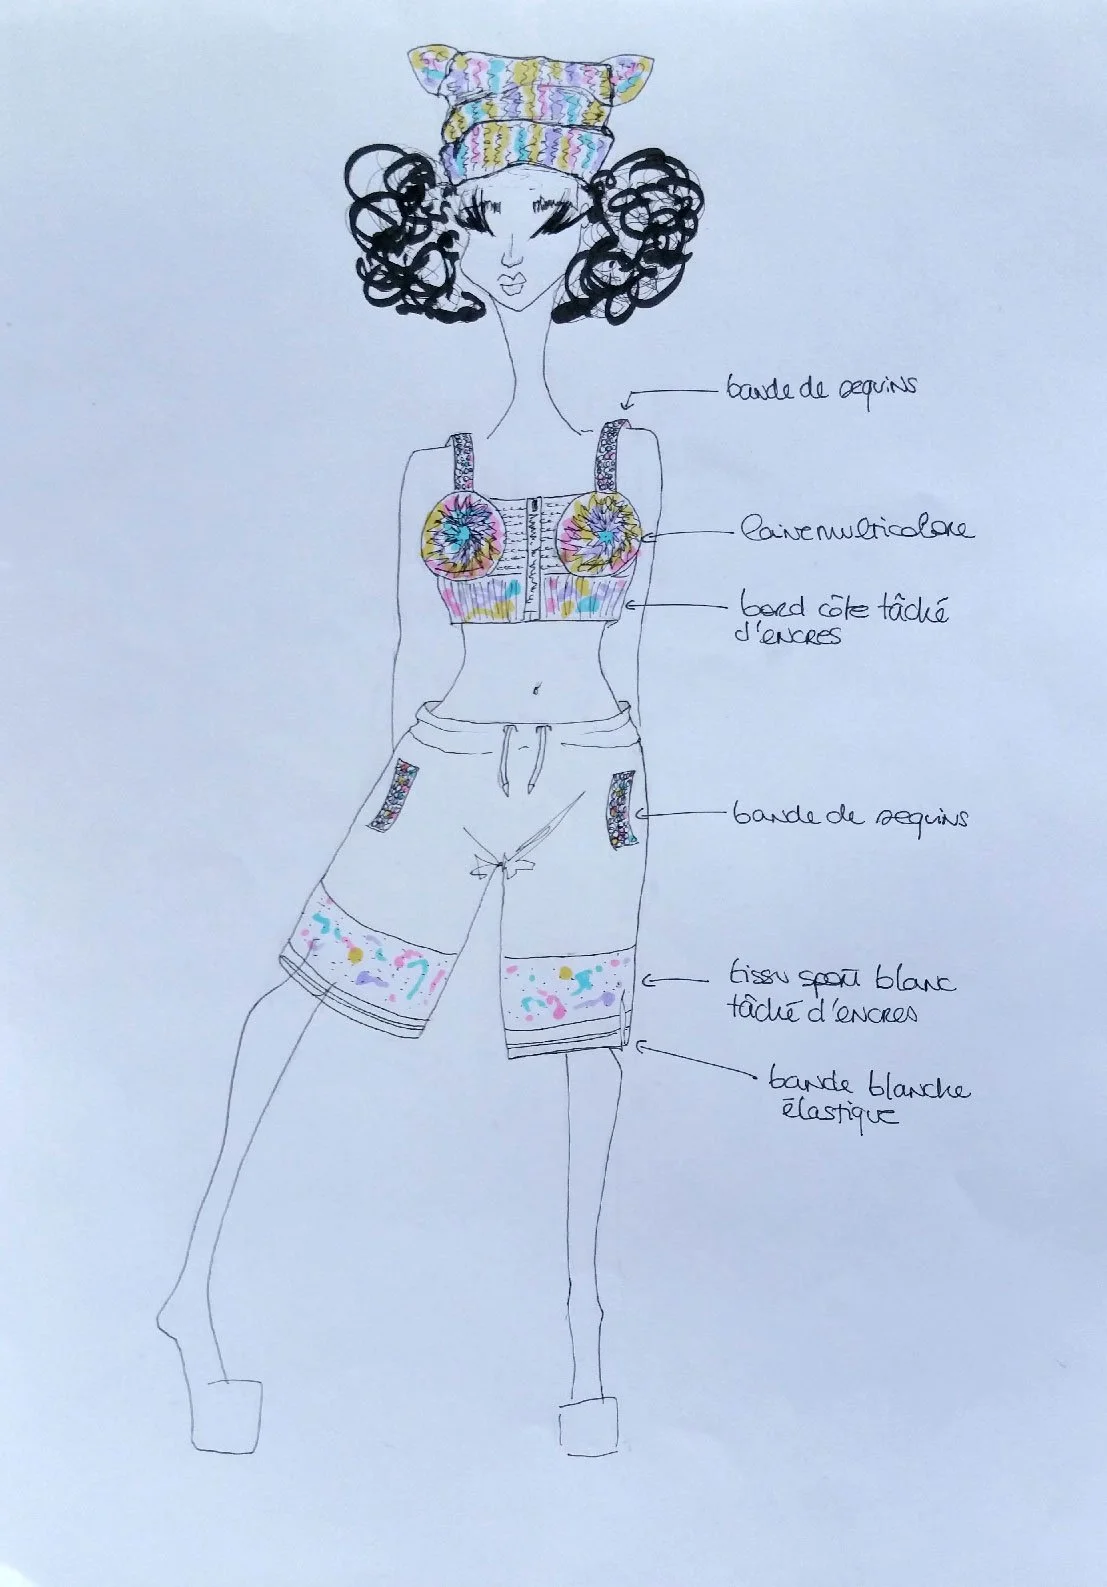 bande de sequins
laine multicolore
bord côte tâché
d'encres
bande de sequins
tissu sport blanc
tâché d'encres
bande blanche
élastique